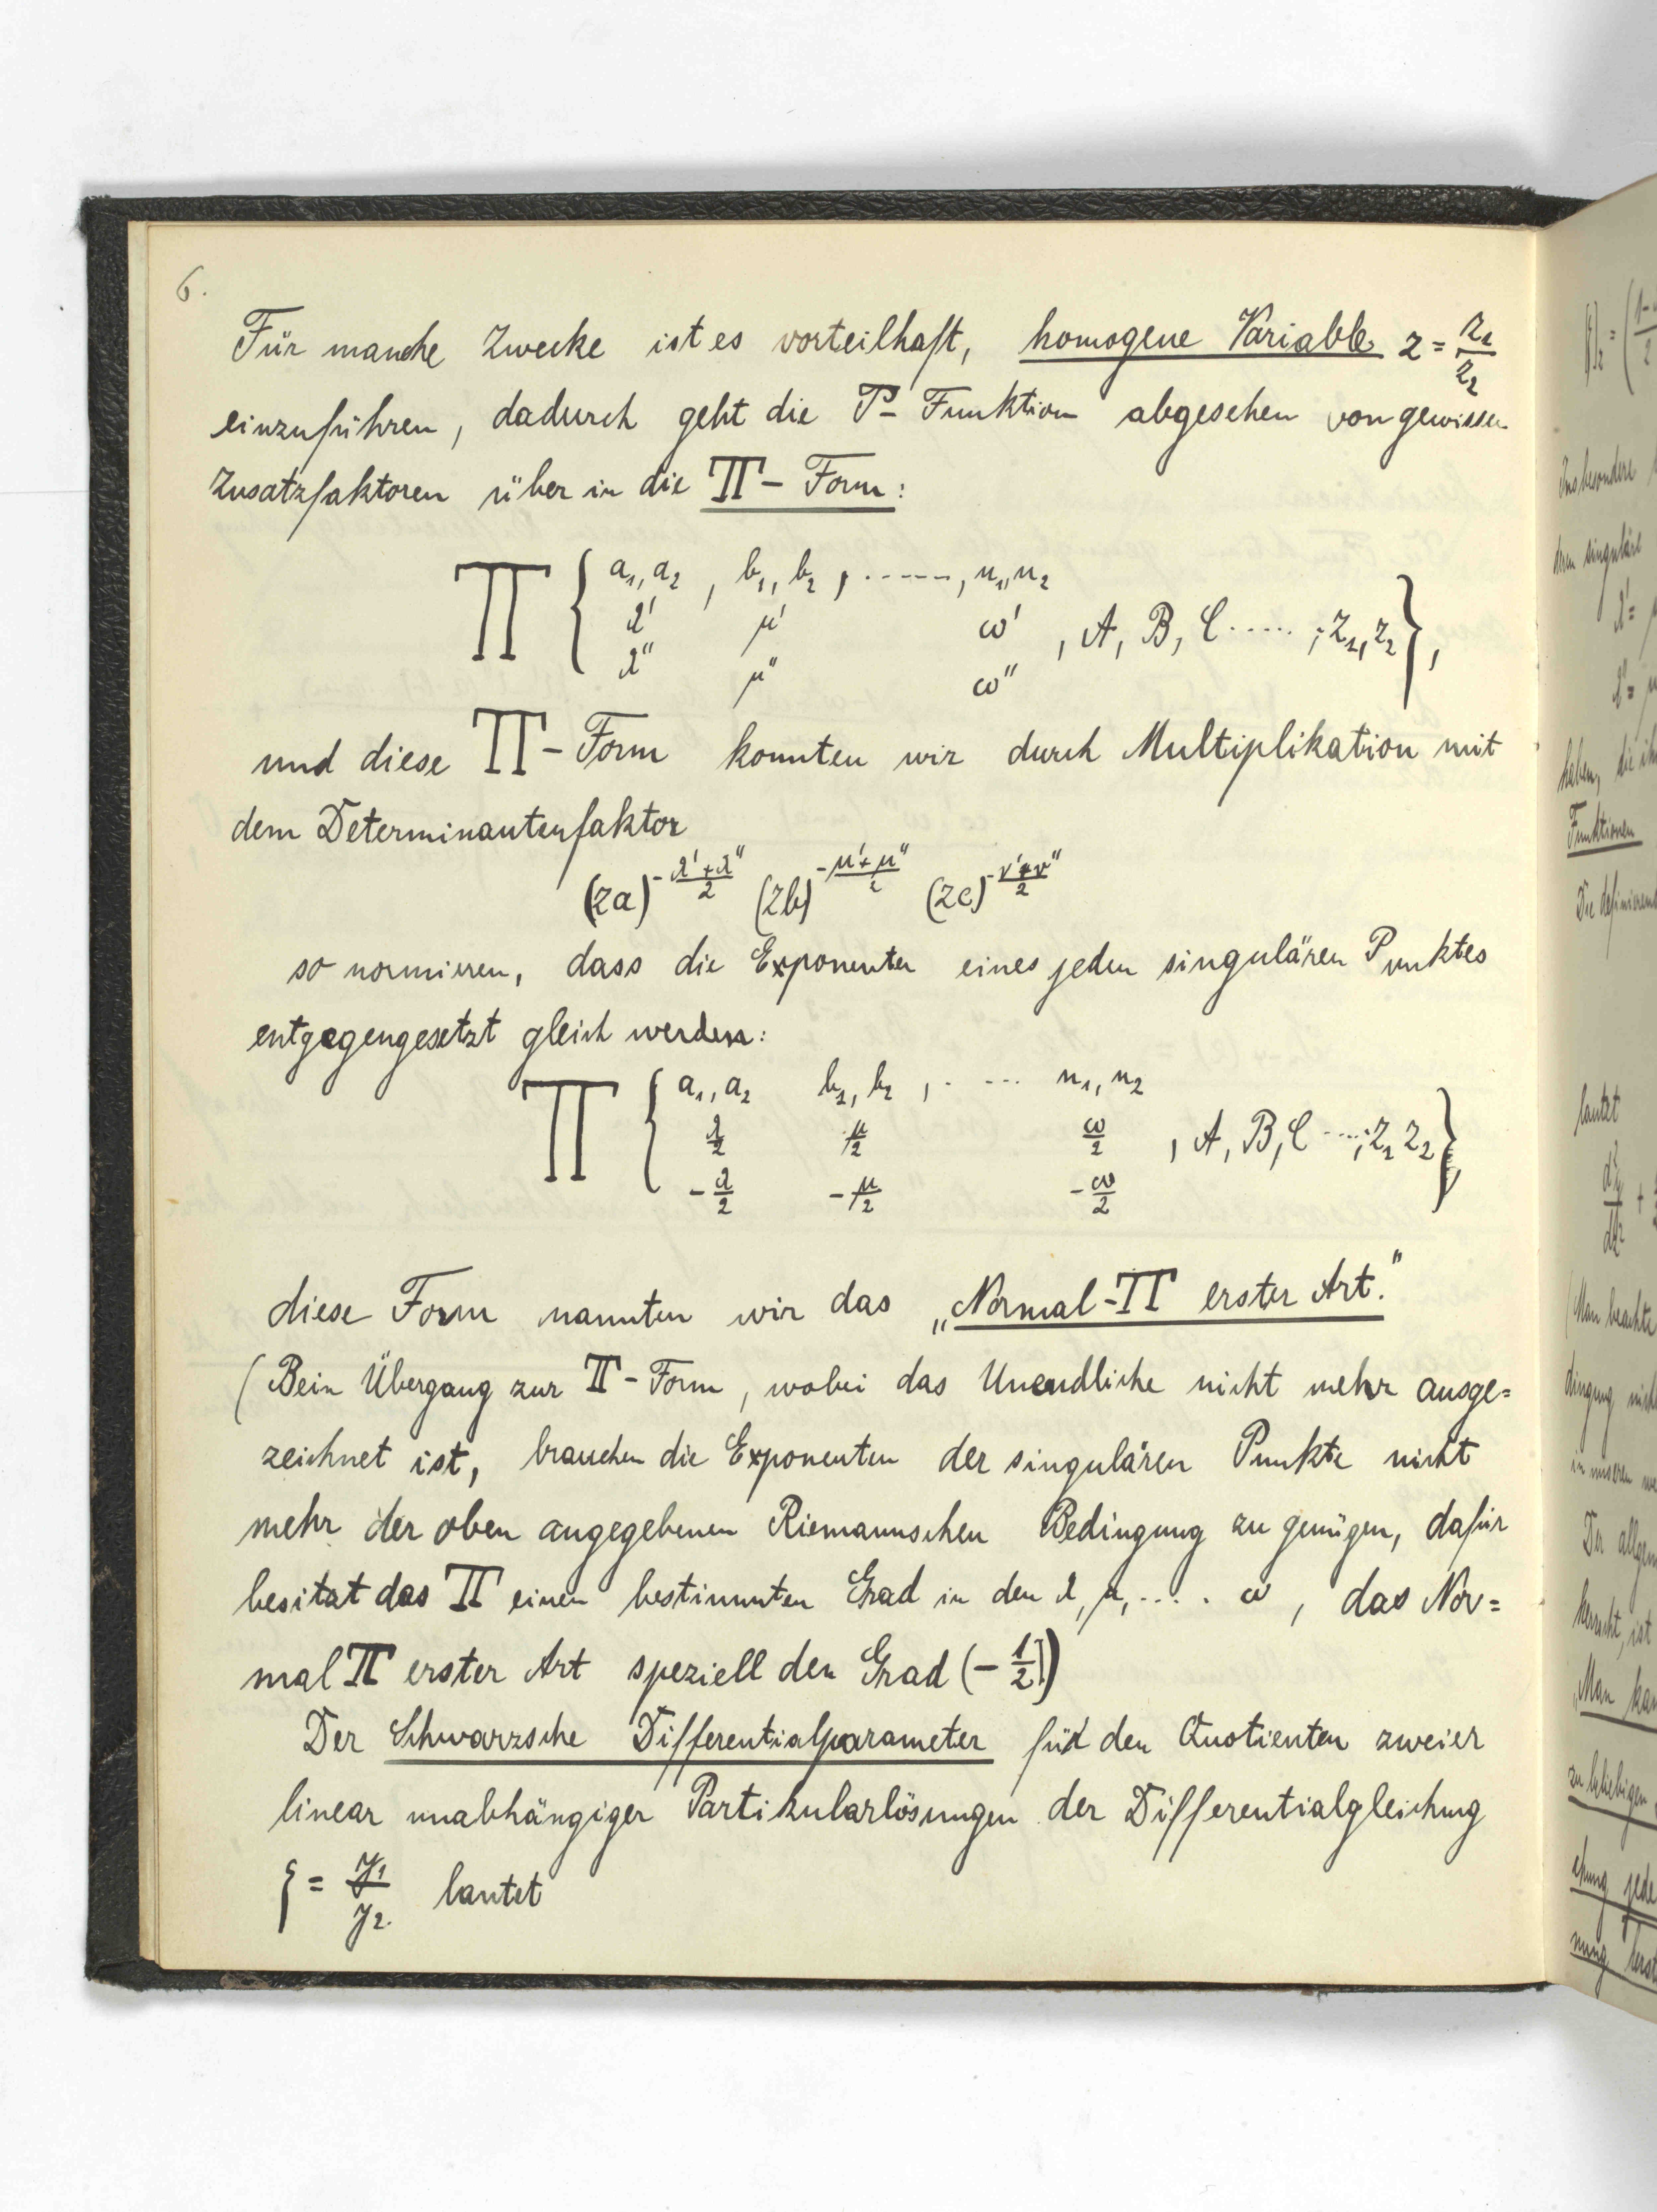 6.
Für manche Zwecke ist es vorteilhaft, homogene Variable z = z₁/z₂
einzuführen, dadurch geht die P-Funktion abgesehen von gewissen
Zusatzfaktoren über in die Π-Form:
Π { a₁,a₂ , b₁,b₂ , ......, n₁,n₂
λ' μ' ω' , A, B, C ..... ; z₁,z₂ },
λ" μ" ω"
und diese Π-Form konnten wir durch Multiplikation mit
dem Determinantenfaktor
(za)^{-(λ'+λ")/2} (zb)^{-(μ'+μ")/2} (zc)^{-(ν'+ν")/2}
so normieren, dass die Exponenten eines jeden singulären Punktes
entgegengesetzt gleich werden:
Π { a₁,a₂ b₁,b₂ , .... n₁,n₂
λ/2 μ/2 ω/2 , A, B, C ....; z₁ z₂ }
-λ/2 -μ/2 -ω/2
diese Form nannten wir das „Normal-Π erster Art."
(Beim Übergang zur Π-Form, wobei das Unendliche nicht mehr ausge=
zeichnet ist, brauchen die Exponenten der singulären Punkte nicht
mehr der oben angegebenen Riemannschen Bedingung zu genügen, dafür
besitzt das Π einen bestimmten Grad in den λ, μ, .... ω, das Nor=
mal Π erster Art speziell den Grad (-1/2))
Der Schwarzsche Differentialparameter für den Quotienten zweier
linear unabhängiger Partikularlösungen der Differentialgleichung
ζ = y₁/y₂ lautet
Insbesondere
deren singuläre
haben, die ih
Funktionen
lautet
(Man beachte
dingung
in unseren
Der allgem
herrscht, ist
„Man kan
zu beliebigen
chung jede
nung